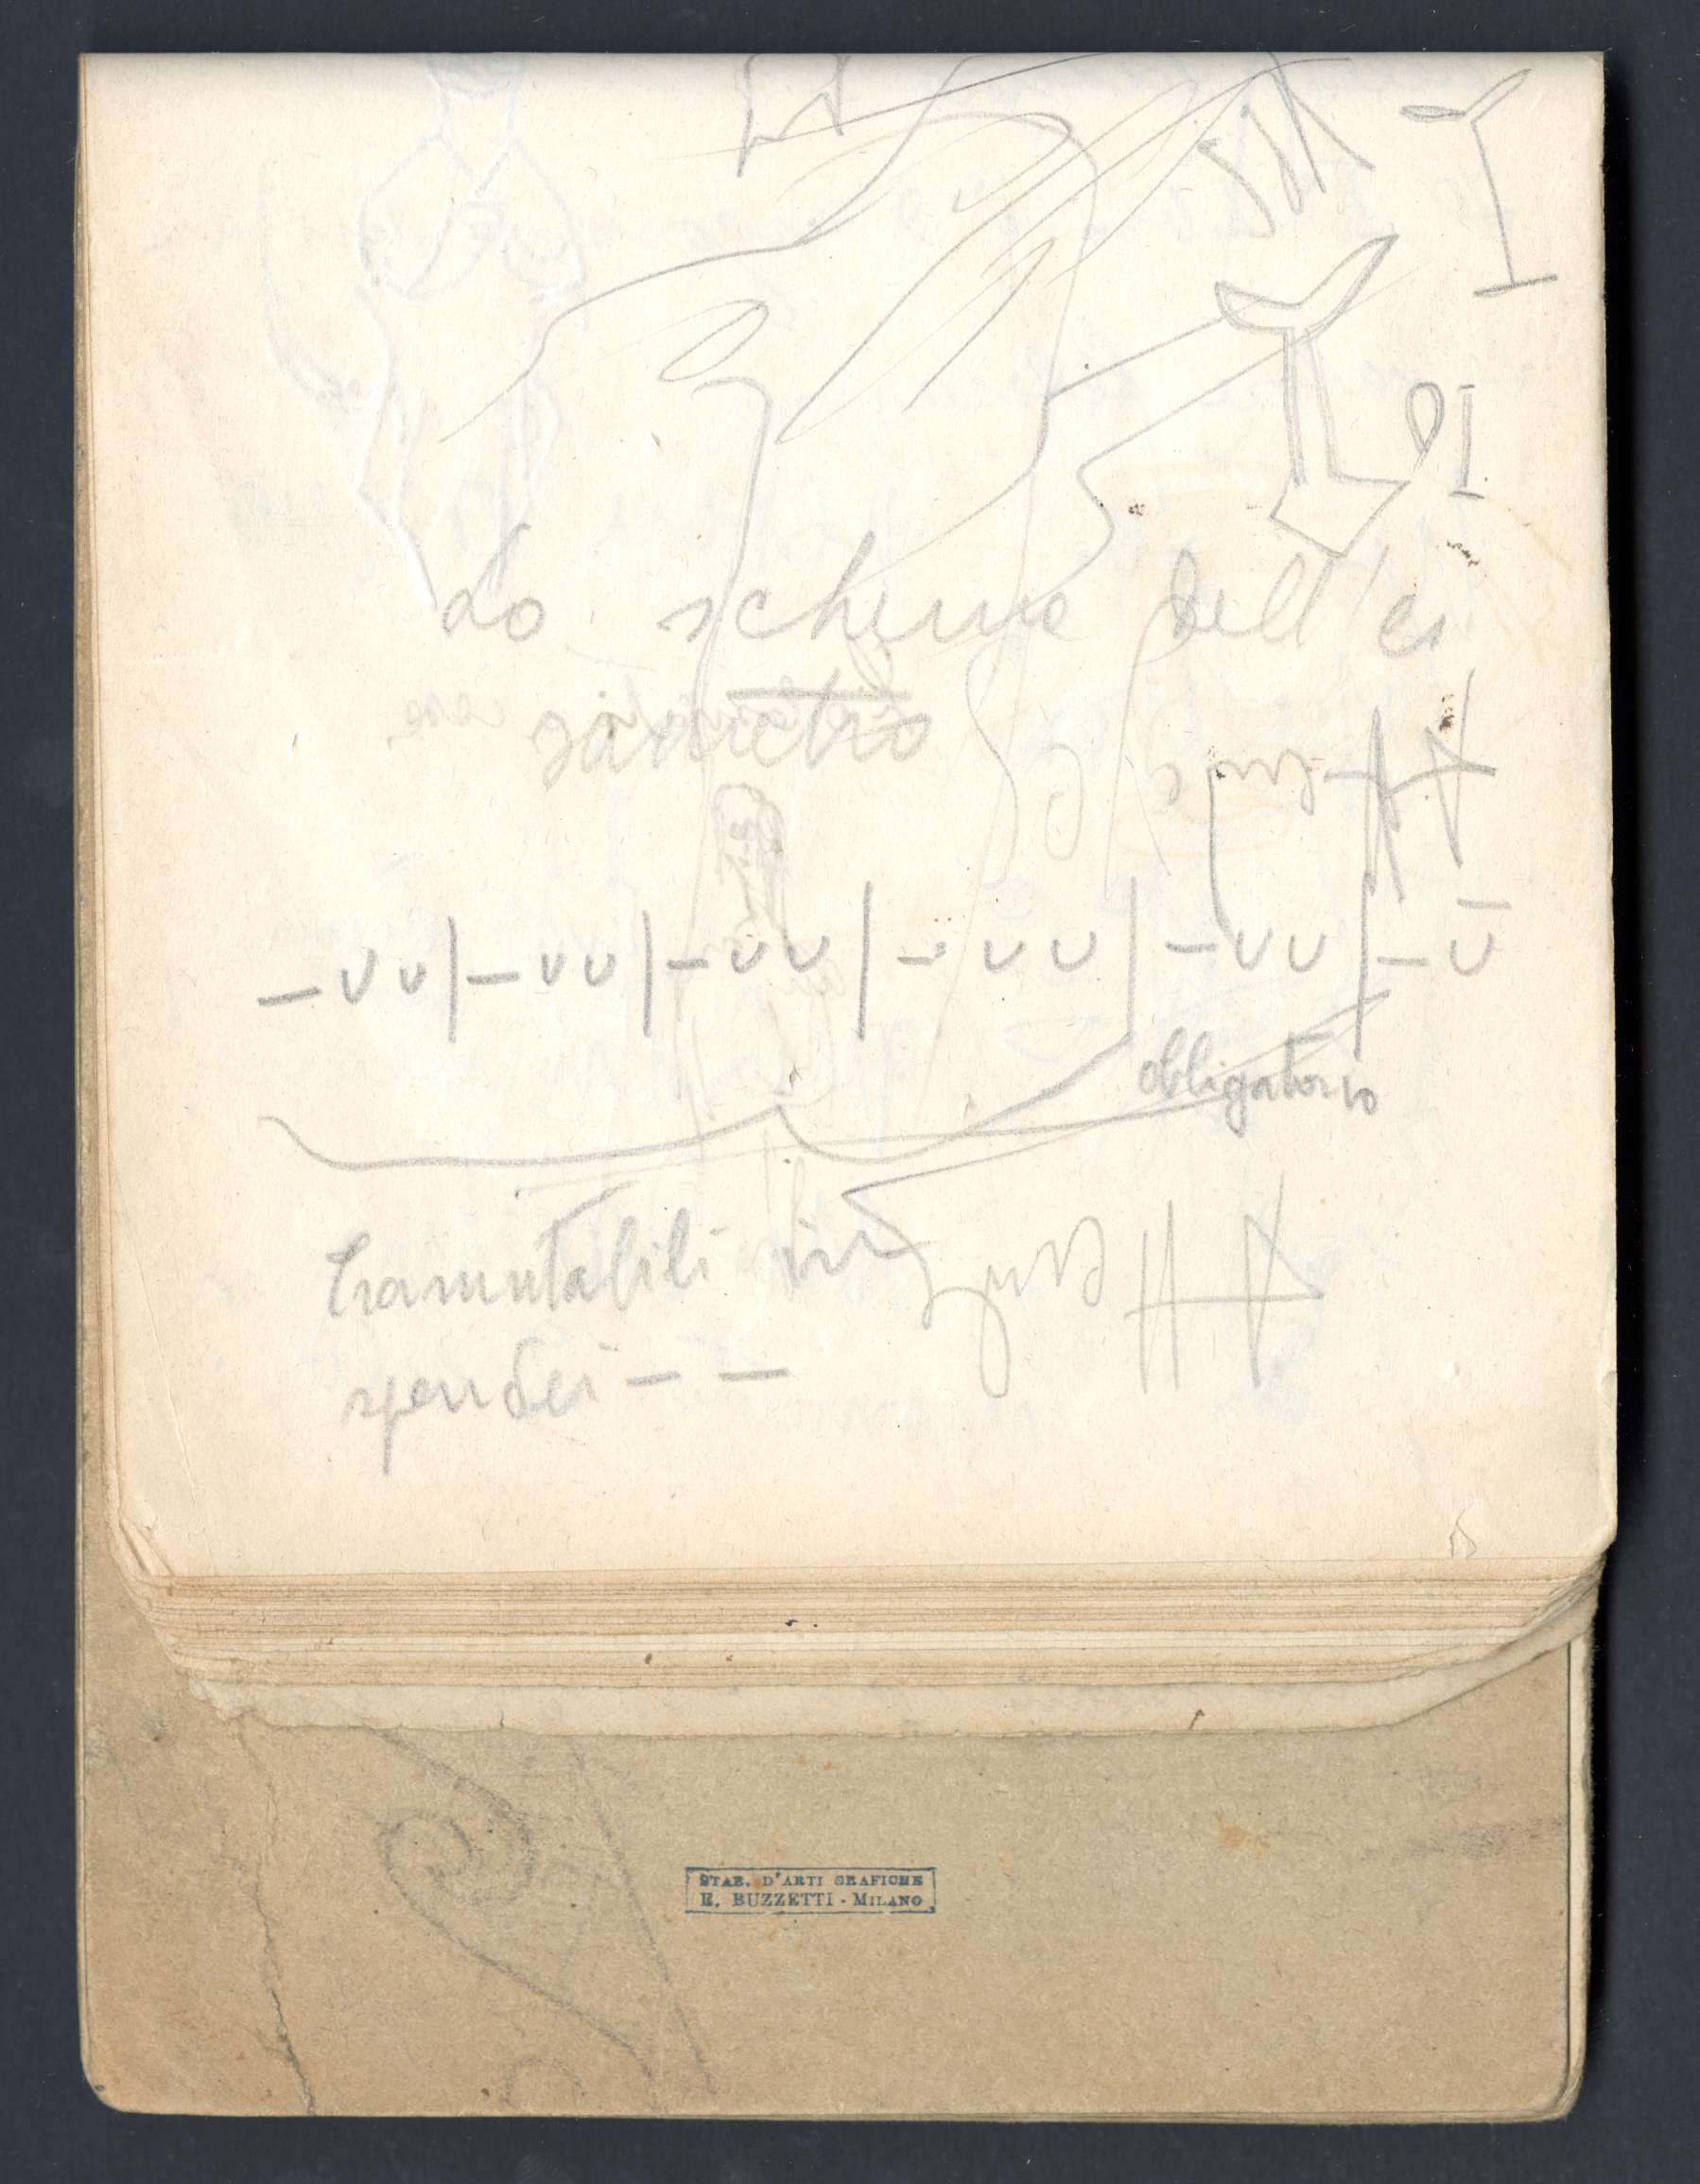 Lo scheme dell'es
sametro
– ∪ ∪ | – ∪ ∪ | – ∪ ∪ | – ∪ ∪ | – ∪ ∪ | – ∪̄
obbligatorio
tramutabili in
spondei – –
STAB. D'ARTI GRAFICHE
E. BUZZETTI - MILANO